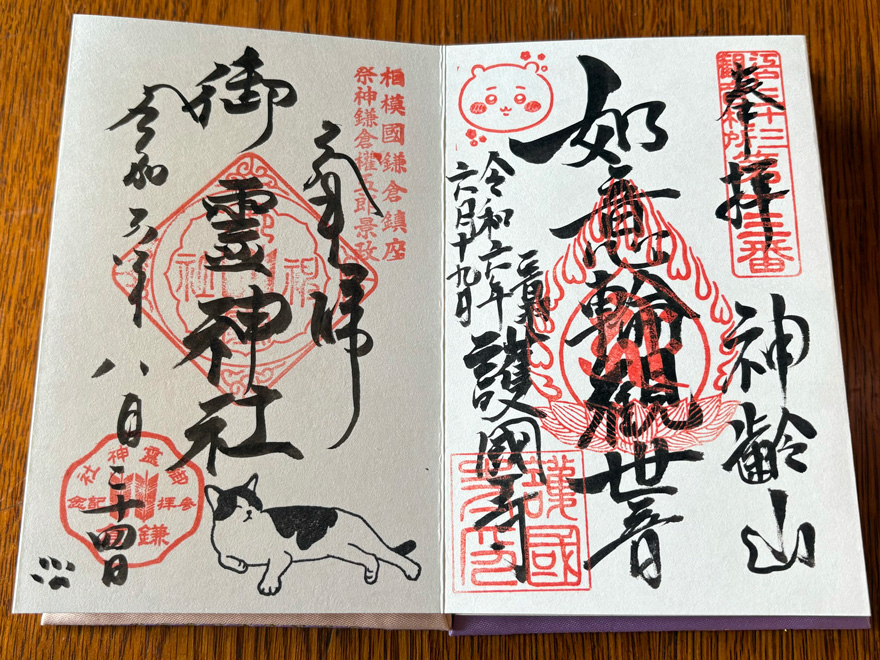 奉拝
江戸三十三
観音札所
第十三番
神齢山
如意輪観世音
護國寺
令和六年
六月十九日
護國
寺印
相模國鎌倉鎮座
祭神鎌倉權五郎景政
奉拝
御霊神社
令和六年八月二十四日
御霊神社
参拝記念
鎌倉